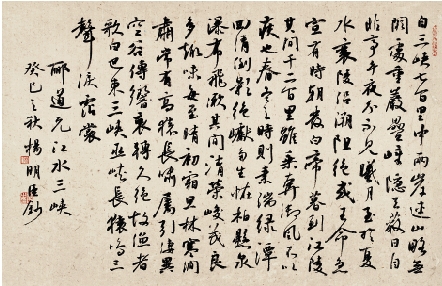 自三峽七百里中兩岸連山略無
闕處重巖疊嶂隱天蔽日自
非亭午夜分不見曦月至於夏
水襄陵沿溯阻絕或王命急
宣有時朝發白帝暮到江陵
其間千二百里雖乘奔御風不以
疾也春冬之時則素湍綠潭
回清倒影絕巘多生怪柏懸泉
瀑布飛漱其間清榮峻茂良
多趣味每至晴初霜旦林寒澗
肅常有高猿長嘯屬引淒異
空谷傳響哀轉久絕故漁者
歌曰巴東三峽巫峽長猿鳴三
聲淚霑裳
酈道元江水三峽
癸巳之秋楊明臣鈔